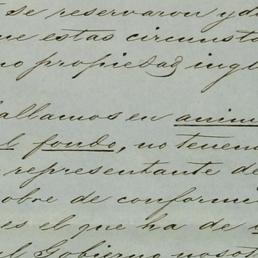 se reservaron y d
ue estas circunsta
o propiedad ingl
allamos en anim
l fondo, no tenem
representante de
obre de conformi
es el que ha de
l Gobierno nosot